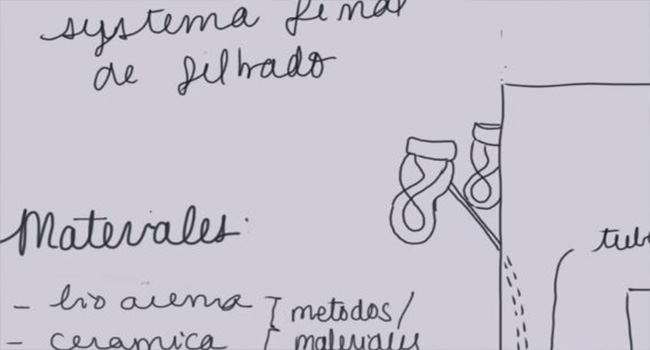 systema final
de filtrado
Materiales:
- bio arena
- ceramica
metodos/
materiales
tub